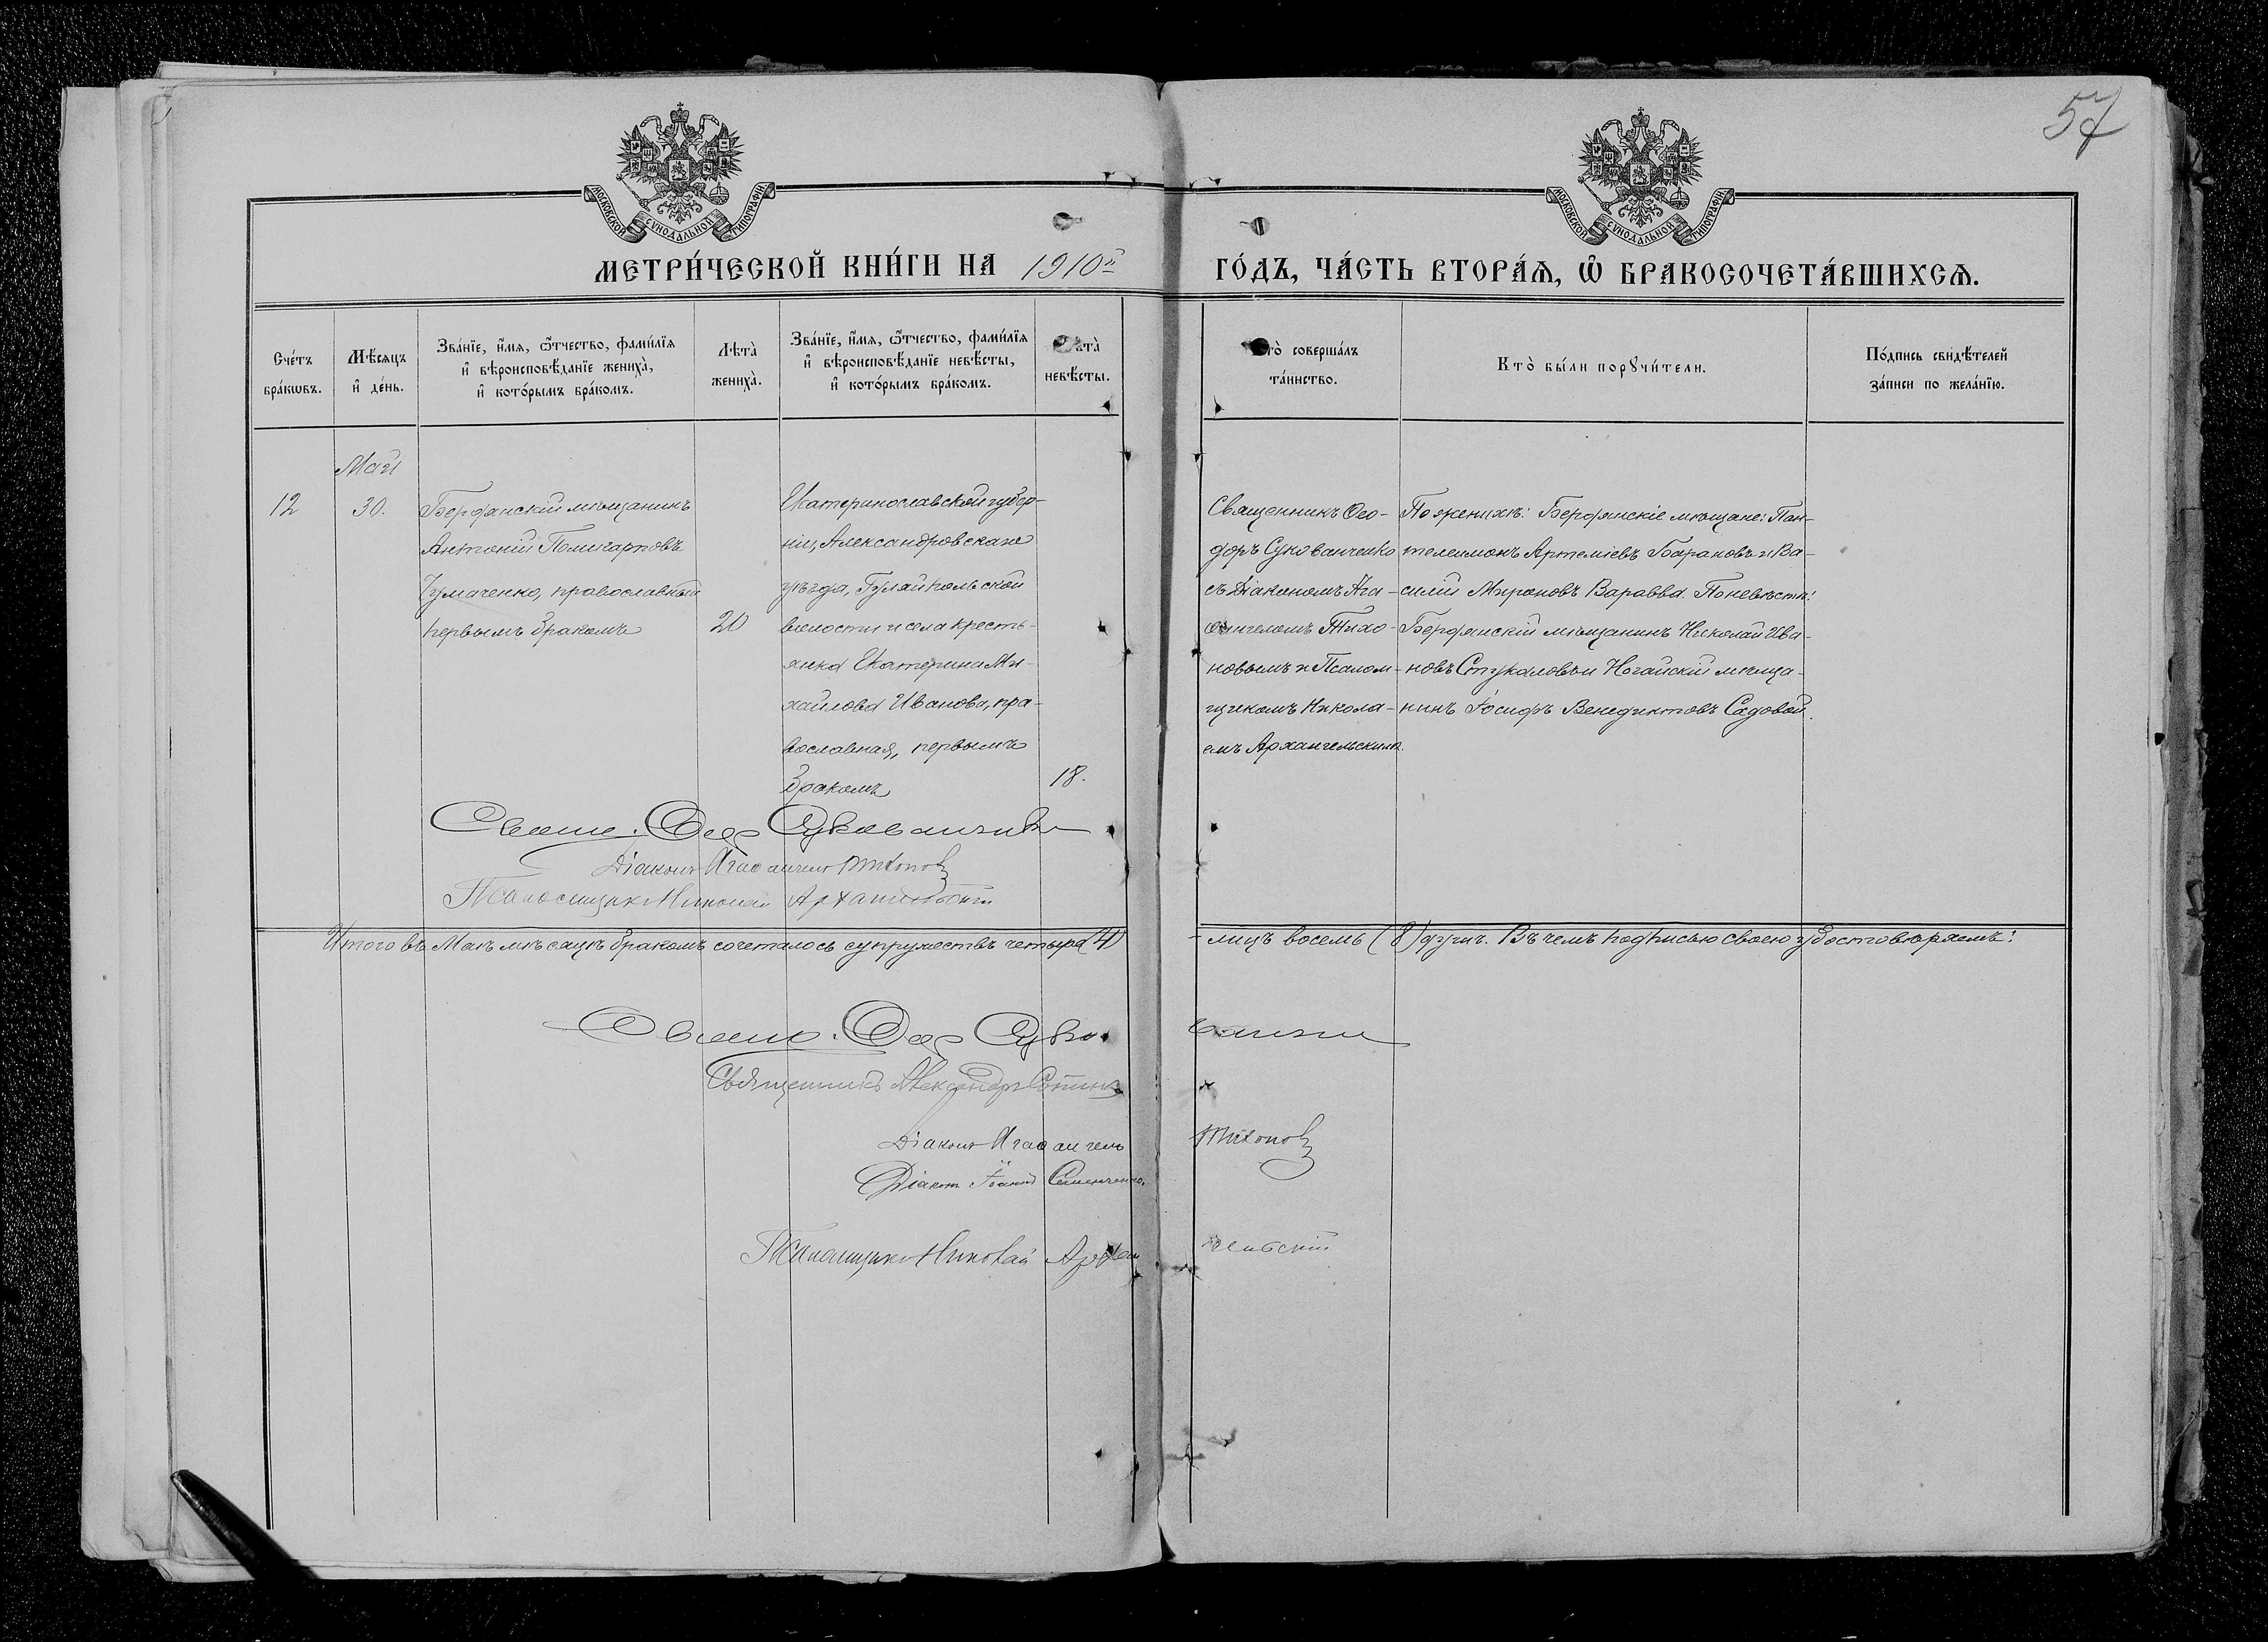 57
МОСКОВСКОЙ СУНОДАЛЬНОЙ ТИПОГРАФІИ.
МОСКОВСКОЙ СУНОДАЛЬНОЙ ТИПОГРАФІИ.
МЕТРИ́ЧЕСКОЙ КНИ́ГИ НА 1910й ГО́ДЪ, ЧА́СТЬ ВТОРА́Ѧ, Ѽ БРАКОСОЧЕТА́ВШИХСѦ.
Сче́тъ
бра́кωвъ.
Мѣ́сяцъ
и҆ де́нь.
Зва́нїе, и҆́мя, ѻ҆́тчество, фами́лїя
и҆ вѣроисповѣ́данїе жениха̀,
и҆ кото́рымъ бра́комъ.
Лѣта̀
жениха̀.
Зва́нїе, и҆́мя, ѻ҆́тчество, фами́лїя
и҆ вѣроисповѣ́данїе невѣ́сты,
и҆ кото́рымъ бра́комъ.
Лѣта̀
невѣ́сты.
Кто̀ соверша́лъ
та́инство.
Кто̀ бы́ли порꙋчи́тели.
По́дпись свидѣ́телей
за́писи по жела́нїю.
Май
12
30.
Бердянскій мѣщанинъ
Антоній Поликарповъ
Чумаченко, православный
первымъ бракомъ
20
Екатеринославской губер-
ніи, Александровскаго
уѣзда, Гуляйпольской
волости и села кресть-
янка Екатерина Ми-
хайлова Иванова, пра-
вославная, первымъ
бракомъ
18.
Священникъ Ѳео-
доръ Сукованченко
съ Діакономъ Ага-
ѳангеломъ Тихо-
новымъ и Псалом-
щикомъ Никола-
емъ Архангельскимъ.
По женихѣ: Бердянскіе мѣщане: Пан-
телеимонъ Артеміевъ Барановъ и Ва-
силій Мироновъ Варавва. По невѣстѣ:
Бердянскій мѣщанинъ Николай Ива-
новъ Стукаловъ и Ногайскій мѣща-
нинъ Іосифъ Венедиктовъ Садовой.
Свящ. Ѳеод Сукованченко
Діаконъ Агаѳангелъ Тихоновъ
Псаломщикъ Николай Архангельскій
Итого въ Маѣ мѣсяцѣ бракомъ сочеталось супружествъ четыре (4) лицъ восемь (8) душъ. Въ чемъ подписью своею удостовѣряемъ:
Свящ. Ѳеод Сукованченко
Священникъ Александръ
Діаконъ Агаѳангелъ Тихоновъ
Діаконъ Іоаннъ Семенченко.
Псаломщикъ Николай Архангельскій